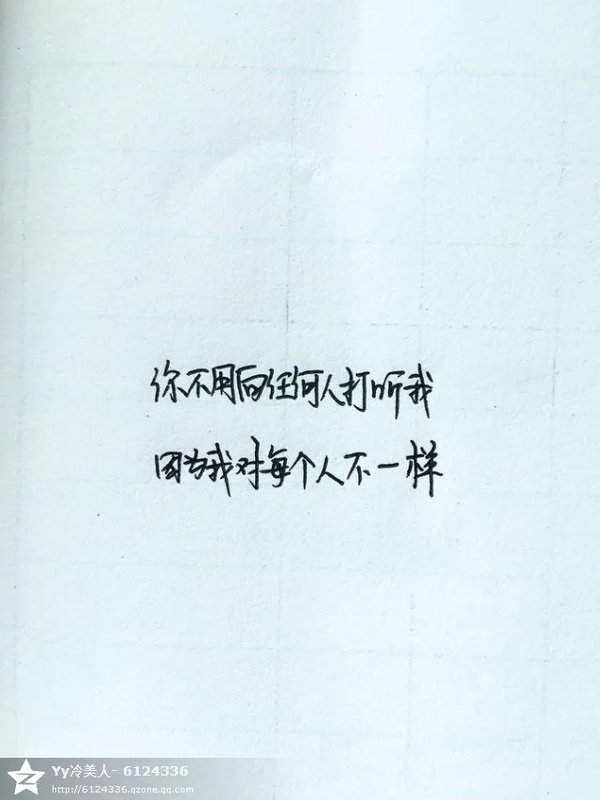 你不用向任何人打听我
因为我对每个人不一样
Yy冷美人- 6124336
http://6124336.qzone.qq.com